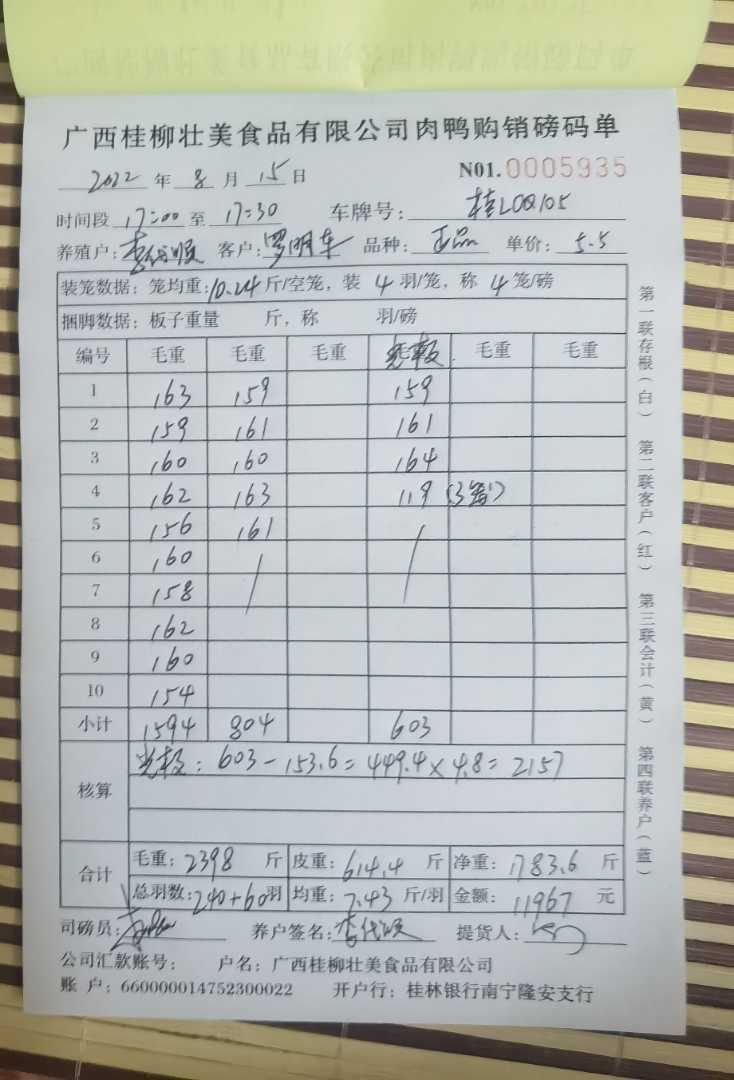 广西桂柳壮美食品有限公司肉鸭购销磅码单
2022 年 8 月 15 日 N01. 0005935
时间段 17:00 至 17:30 车牌号: 桂L0Q105
养殖户: 李代顺 客户: 罗明车 品种: 正品 单价: 5.5
装笼数据: 笼均重: 10.24 斤/空笼, 装 4 羽/笼, 称 4 笼/磅
捆脚数据: 板子重量 斤, 称 羽/磅
编号 毛重 毛重 毛重 光板 毛重 毛重
1 163 159 159
2 159 161 161
3 160 160 164
4 162 163 119 (3笼)
5 156 161
6 160
7 158
8 162
9 160
10 154
小计 1594 804 603
核算 光板: 603-153.6=449.4×4.8=2157
合计 毛重: 2398 斤 皮重: 614.4 斤 净重: 1783.6 斤
总羽数: 240+60羽 均重: 7.43 斤/羽 金额: 11967 元
司磅员: 养户签名: 李代顺 提货人:
公司汇款账号: 户名: 广西桂柳壮美食品有限公司
账 户: 660000014752300022 开户行: 桂林银行南宁隆安支行
第一联存根(白) 第二联客户(红) 第三联会计(黄) 第四联养户(蓝)